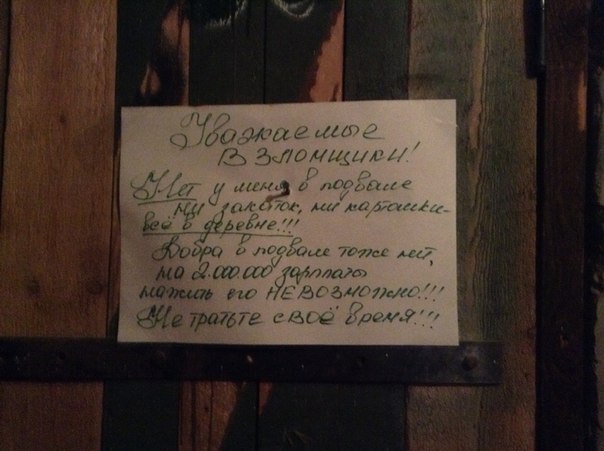 Уважаемые
Взломщики!
Нет у меня в подвале
ни закаток, ни картошки-
всё в деревне!!!
Добра в подвале тоже нет,
на 2.000 000 зарплаты
нажить его НЕВОЗМОЖНО!!!
Не тратьте своё время!!!